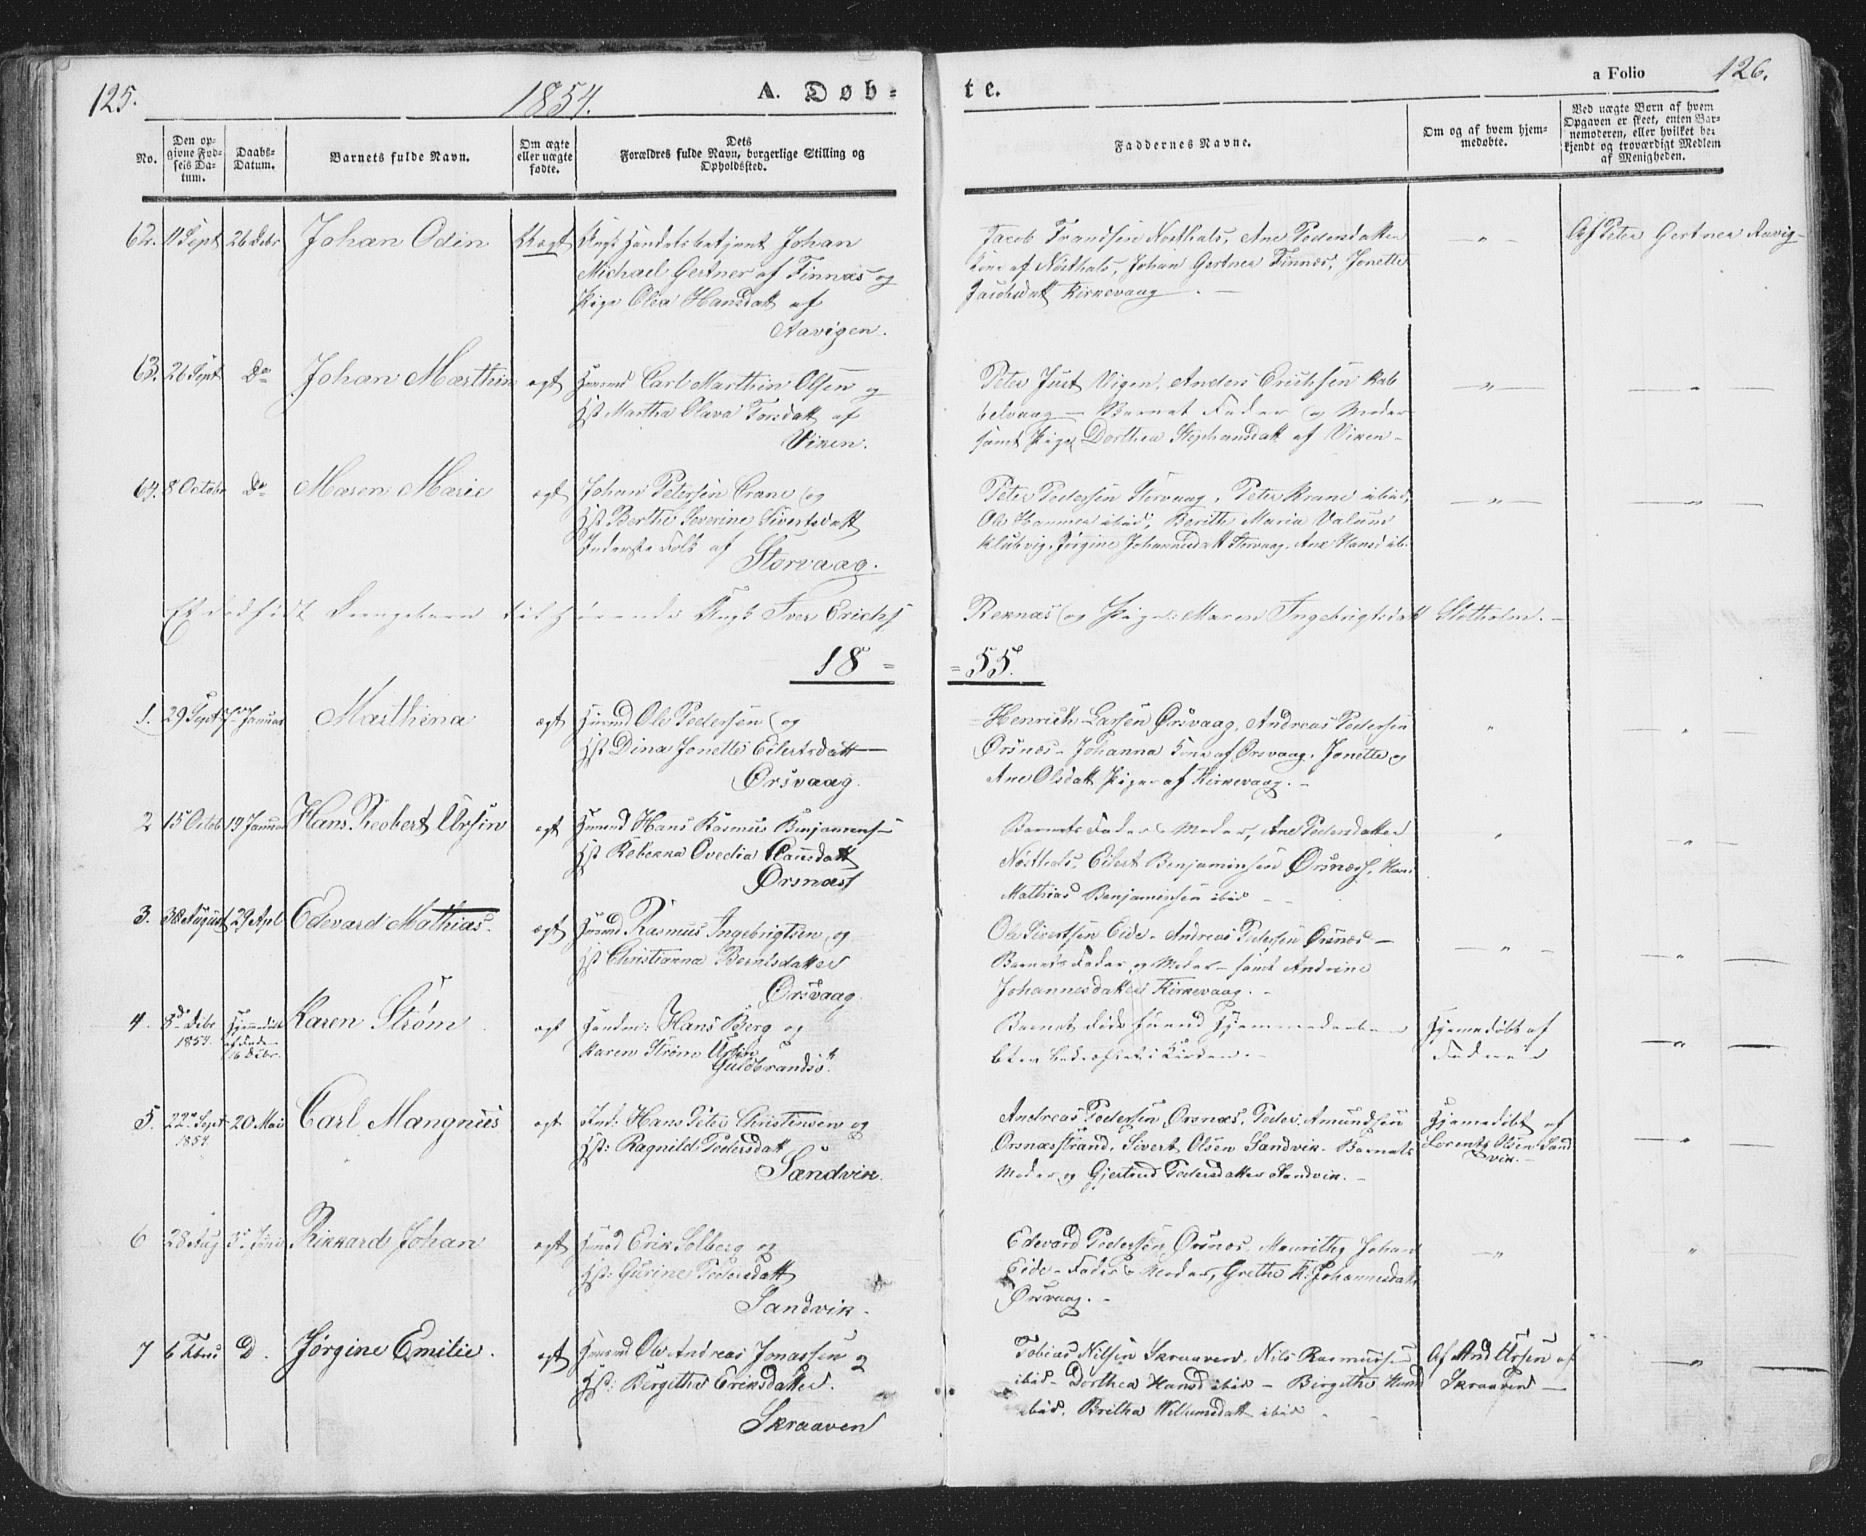 125.
1854.
A. Døb-
te.
a Folio
126.
No.
Den op-
givne Fød-
sels Da-
tum.
Daabs-
Datum.
Barnets fulde Navn.
Om ægte
eller uægte
fødte.
Dets
Forældres fulde Navn, borgerlige Stilling og
Opholdssted.
Faddernes Navne.
Om og af hvem hjem-
medøbte.
Ved uægte Børn af hvem
Opgaven er skeet, enten Bar-
nemoderen, eller hvilket be-
kjendt og troværdigt Medlem
af Menigheden.
62. 11 Sept 26 Debr Johan Odin Uægt Ungk Handelsbetjent Johan
Michael Gertner af Finnæs og
Pige Olea Hansdatt af
Aavigen.
Jacob Trandsen Nøsthals, Ane Pedersdatter
Kone af Nøsthals, Johan Gertner Finnæs, Jonette
Jacobsdatt Kirkevaag. -
- " -
Af Peter Gertner Aavig-
63. 26 Sept Do Johan Marthin ægt Huusmd Carl Marthin Olsen og
Hst Martha Olava Torsdatt af
Viken.
Peter Just Vigen. Anders Erichsen Kab
belvaag - Barnets Fader og Moder
samt Pige Dorthea Stephansdatt af Viken -
- " -
- " -
64. 8 October Do Maren Marie ægt Johan Petersen Crane og
Hst Berthe Severine Sivertsdatt
Inderste Folk af Storvaag.
Peter Pedersen Storvaag, Peter Krane ibid,
Ole Hammer ibid, Berith Maria Valum
Klubvig. Jørgine Johannesdatt Storvaag, Ane Hansd ib.
- " -
- " -
Et dødfødt Drengebarn tilhørende Ungk Iver Erichs Reknæs og Pige: Maren Ingebrigtsdatt Slotholm. -
18 = = 55.
1. 29 Sept 7de Januar Marthina ægt Huusmd Ole Pedersen og
Hst Dina Jonette Eilertsdatt -
Ørsvaag.
Henrich Larsen Ørsvaag, Andreas Pedersen
Ørsnæs - Johanna Kone af Ørsvaag, Jonette og
Ane Olsdatt Piger af Kirkevaag. -
"
- " -
2 15 Octob 19 Januar Hans Riebert Ursin ægt Huusmd Hans Rasmus Benjaminsen
Hst Rebekka Ovedia Clausdatt
Ørsnæs
Barnets Fader & Moder, Ane Pedersdatter
Nøsthals, Eilert Benjaminsen Ørsnæs, Hans
Mathias Benjaminsen ibid - -
"
- " -
3. 30 August 29 Apl Edevard Mathias. ægt Huusmd Rasmus Ingebrigtsen og
Hst Christianna Berntsdatter
Ørsvaag
Ole Sivertsen Eide - Andreas Pedersen Ørsnæs -
Barnets Fader og Moder - samt Andrine
Johannesdatter Kirkevaag. -
- " -
- " -
4. 8de Debr
1854. Hjemmedøbt
af Fader
16 Debr. Karen Strøm ægt Handm: Hans Berg og
Karen Strøm Ursin
Guldbrandsø.
Barnet døde
blev bekræftet i Kirken. -
Hjemedøbt af
Faderen
- " -
5. 22de Sept
1854. 20 Mai Carl Mangnus ægt Ind: Hans Peter Christensen og
Hst: Ragnild Pedersdatt
Sandvik.
Andreas Pedersen Ørsnæs, Peder Amundsen
Ørsnæsstrand, Sivert Olsen Sandvik - Barnets
Moder og Gjertrud Pedersdatter Sandvik. -
Hjemedøbt af
Lorents Olsen Sand
vik. -
- " -
6 28 Aug 3de Juni Rikkard Johan ægt Huusmd Erik Solberg og
Hst: Gurine Pedersdatt
Sandvik.
Edevard Pedersen Ørsnæs, Mauritz Johan
Eide - Fader & Moder, Grethe K. Johannesdatt
Ørsvaag. -
- " -
"
7 6 Febru D. Jørgine Emilie. ægt Huusmd Ole Andreas Jonassen og
Hst: Bergithe Eriksdatter.
Skraaven
Tobias Nilsen Skraaven, Nils Rasmussen
ibid - Dorthea Hansd ibid - Birgithe Hansd
ibid. Britha Willumsdatt ibid -
Af And Ursen af
Skraaven -
- " -